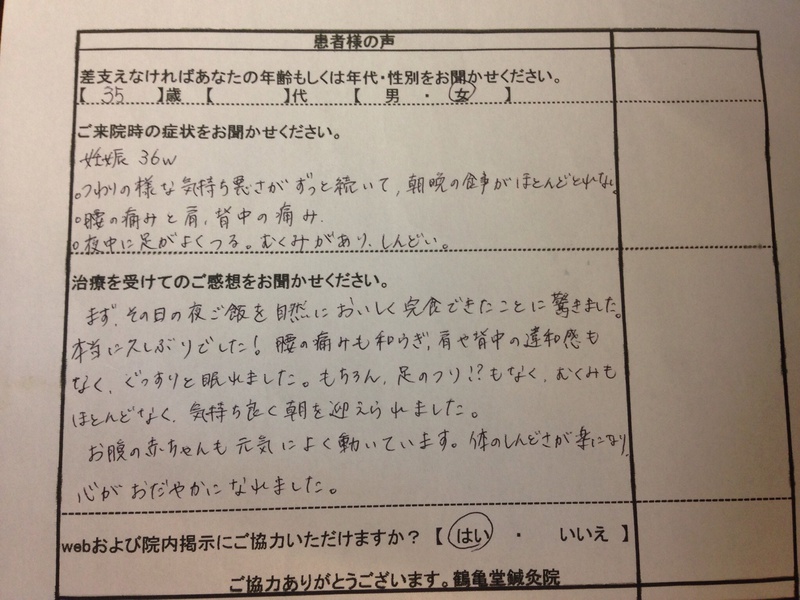 患者様の声
差支えなければあなたの年齢もしくは年代・性別をお聞かせください。
【 35 】歳 【 】代 【 男 ・ 女 】
ご来院時の症状をお聞かせください。
妊娠 36w
。つわりの様な気持ち悪さがずっと続いて、朝晩の食事がほとんどとれない
。腰の痛みと肩、背中の痛み.
。夜中に足がよくつる。むくみがあり、しんどい。
治療を受けてのご感想をお聞かせください。
まず、その日の夜ご飯を自然においしく完食できたことに驚きました。
本当に久しぶりでした! 腰の痛みも和らぎ、肩や背中の違和感も
なく、ぐっすりと眠れました。もちろん、足のつり!?もなく、むくみも
ほとんどなく、気持ち良く朝を迎えられました。
お腹の赤ちゃんも元気によく動いています。体のしんどさが楽になり、
心がおだやかになれました。
webおよび院内掲示にご協力いただけますか?【 はい ・ いいえ 】
ご協力ありがとうございます。鶴亀堂鍼灸院